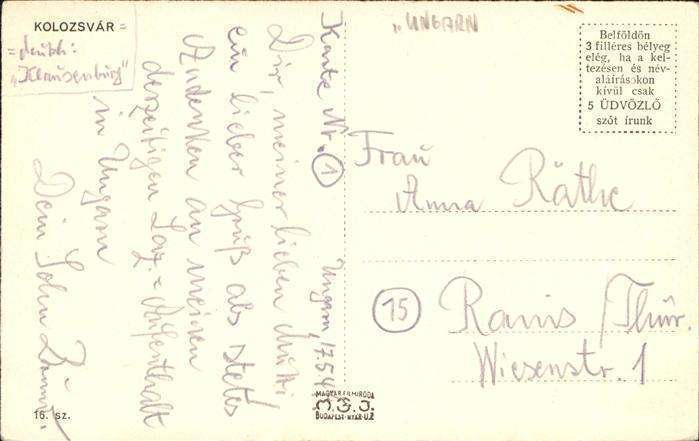 KOLOZSVÁR =
= deutsch:
"Klausenburg"
"UNGARN
Belföldön
3 filléres bélyeg
elég, ha a kel-
tezésen és név-
aláírásokon
kívül csak
5 ÜDVÖZLŐ
szót írunk
Karte Nr. 1 Ungarn,
Dir, meiner lieben Mutti
ein lieber Gruß als stetes
Andenken an meinen
derzeitigen Laz.-Aufenthalt
in Ungarn
Dein Sohn
Frau
Anna Räthe
15 Ranis/Thür.
Wiesenstr. 1
MAGYAR FILMIRODA
M.F.I.
BUDAPEST-NYÁR-U.2
16. sz.